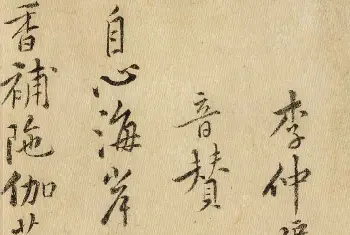 李仲
音赞
自心海岸
香補陁伽